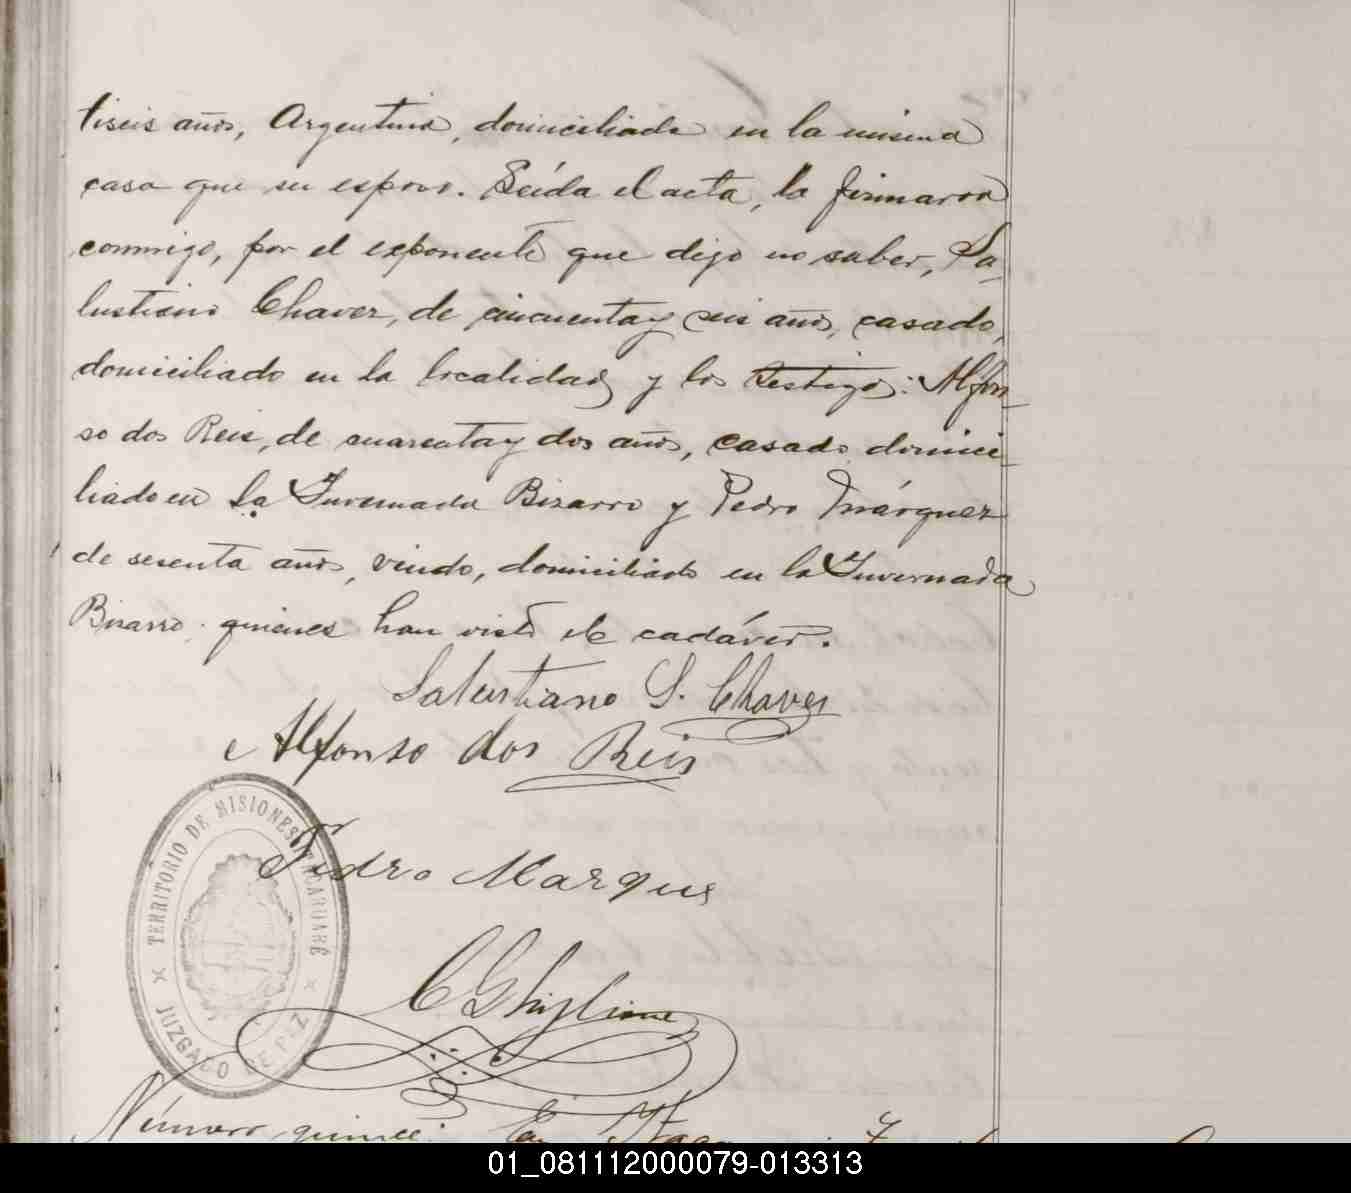 tiseis años, Argentina, domiciliada en la misma
casa que su esposo. Leída el acta, la firmaron
conmigo, por el exponente que dijo no saber, Sa-
lustiano Chavez, de cincuenta y seis años, casado,
domiciliado en la localidad y los testigos: Alfon-
so dos Reis, de cuarenta y dos años, casado, domici-
liado en la Invernada Bizarro y Pedro Márquez
de sesenta años, viudo, domiciliado en la Invernada
Bizarro, quienes han visto el cadáver.
Salustiano S. Chaves
Alfonso dos Reis
Pedro Marques
C Ghiglione
TERRITORIO DE MISIONES ITACARUARÉ
JUZGADO DE PAZ
Número quince: En
01_081112000079-013313